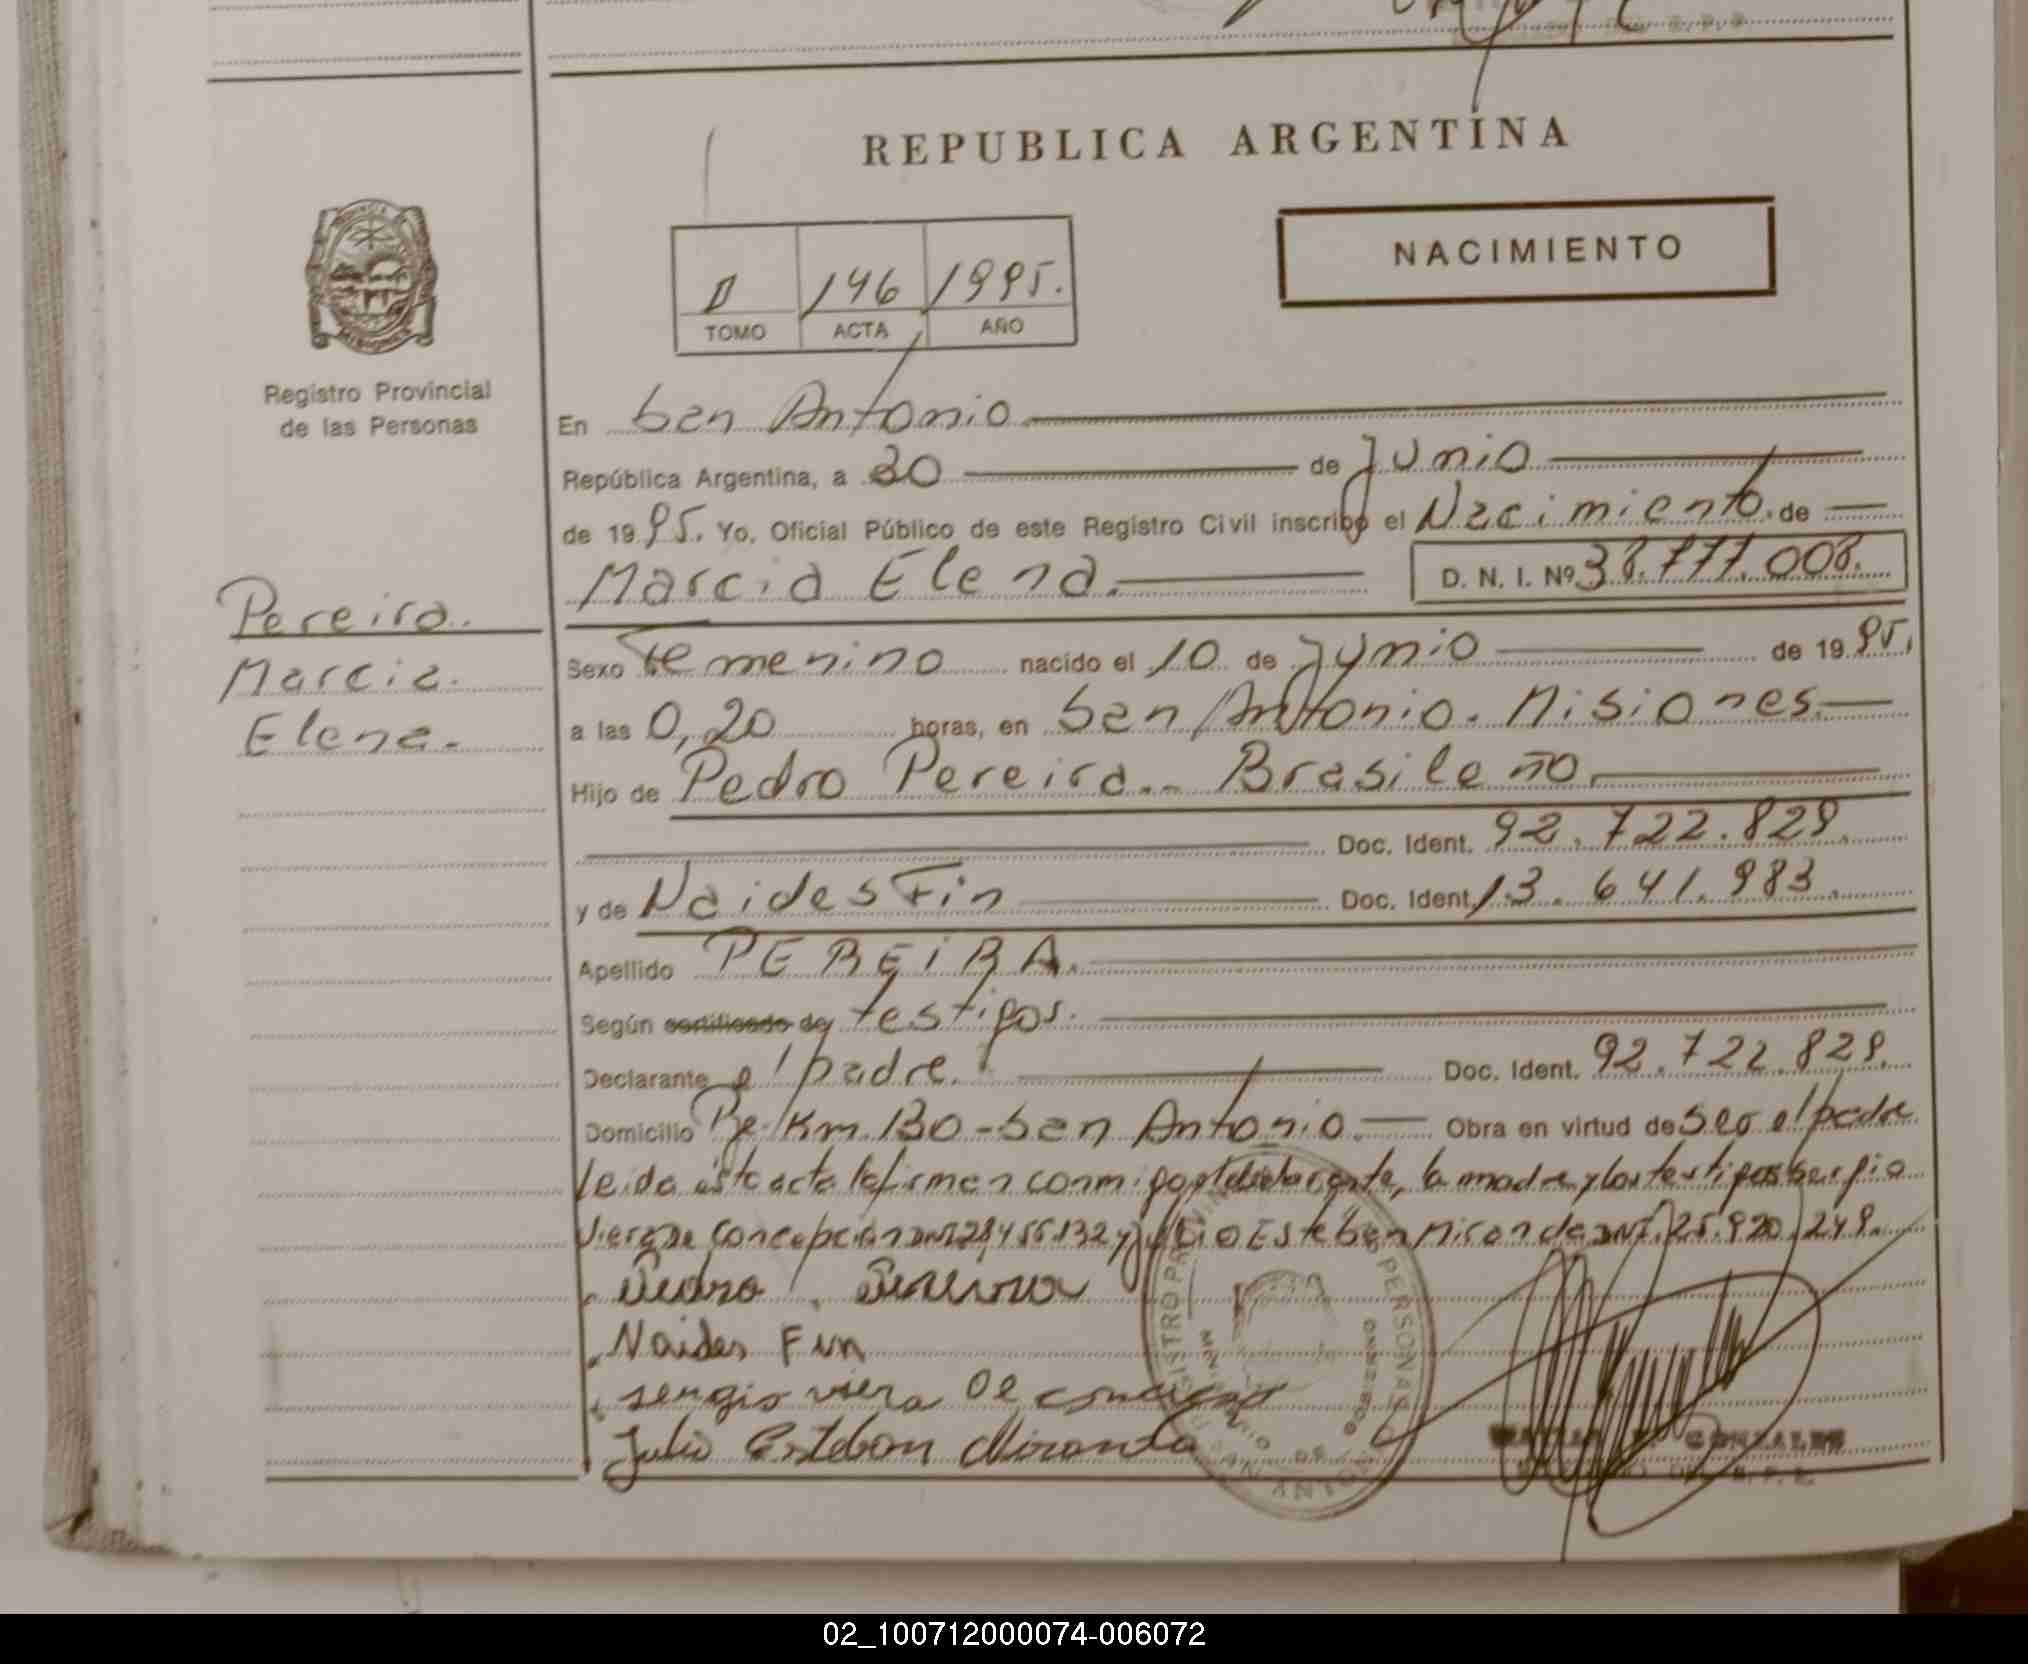 REPUBLICA ARGENTINA
NACIMIENTO
146 1995.
TOMO ACTA AÑO
Registro Provincial
de las Personas
En San Antonio
República Argentina, a 30 de Junio
de 1995. Yo, Oficial Público de este Registro Civil inscribo el Nacimiento de
Marcia Elena. D. N. I. Nº 38.777.008.
Pereira.
Marcia.
Elena.
Sexo Femenino nacido el 10 de Junio de 1995.
a las 0,20 horas, en San Antonio. Misiones.
Hijo de Pedro Pereira.. Brasileño
Doc. Ident. 92.722.829.
y de Naides Fin Doc. Ident. 13.641.983.
Apellido PEREIRA.
Según certificado de testigos.
Declarante el padre. Doc. Ident. 92.722.829.
Domicilio Pje. Km. 130 - San Antonio. Obra en virtud de ser el padre
leida esta acta la firman conmigo el declarante, la madre y los testigos Sergio
Viera De Concepción y Julio Esteban Miranda DNI. 25.920.249.
Pedro Pereira
Naides Fin
sergio viera De
Julio Esteban Miranda
REGISTRO PERSONAS
GONZALEZ
02_100712000074-006072